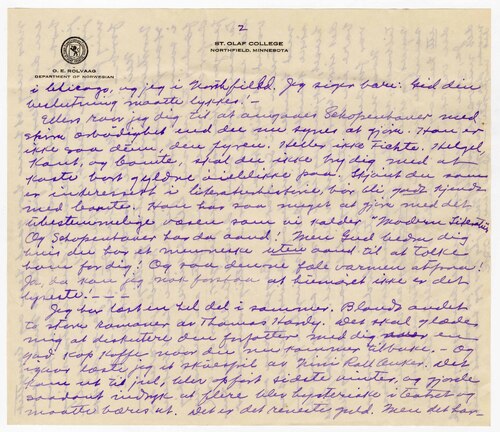 2
ST. OLAF COLLEGE
NORTHFIELD, MINNESOTA
O. E. ROLVAAG
DEPARTMENT OF NORWEGIAN
i Chicago, og jeg i Northfield. Jeg siger bare: Gid den
beslutning maatte lykkes! –
Ellers raar jeg dig til at angribe Schopenhauer med
större ærbødighet end du nu synes at gjøre. Han er
ikke saa dum, den fyren. Heller ikke Fichte. Hegel,
Kant, og Comte, skal du ikke bry dig med at
kaste bort gyldne øieblikke paa. Skjønt du som
er interessert i literaturhistorie, bør bli godt kjendt
med Comte. Han har saa meget at gjøre med det
ubestemmelige væsen som vi kalder "Modern Literature"
Og Schopenhauer har da aand! Men Gud bedre dig
hvis du hør et menneske uten aand til at tolke
ham for dig! Og saa denne fæle varmen attpaa!
Ja, da kan jeg nok forstaa at hiemmet ikke er det
lyseste. – – – –
Jeg har læst en hel del i sommer. Blandt andet
to store romaner av Thomas Hardy. Det skal glæde
mig at diskutere den forfatter med dig over en
god kop kaffe naar du nu kommer tilbake. – Og
igaar læste jeg et skuespil av Finn Halvorsen. Det
kom ut til jul, blev opført sidste vinter, og gjorde
saadant indtryk at flere blev hysteriske i teatret og
maatte bæres ut. Det er det reneste guld. Men det har